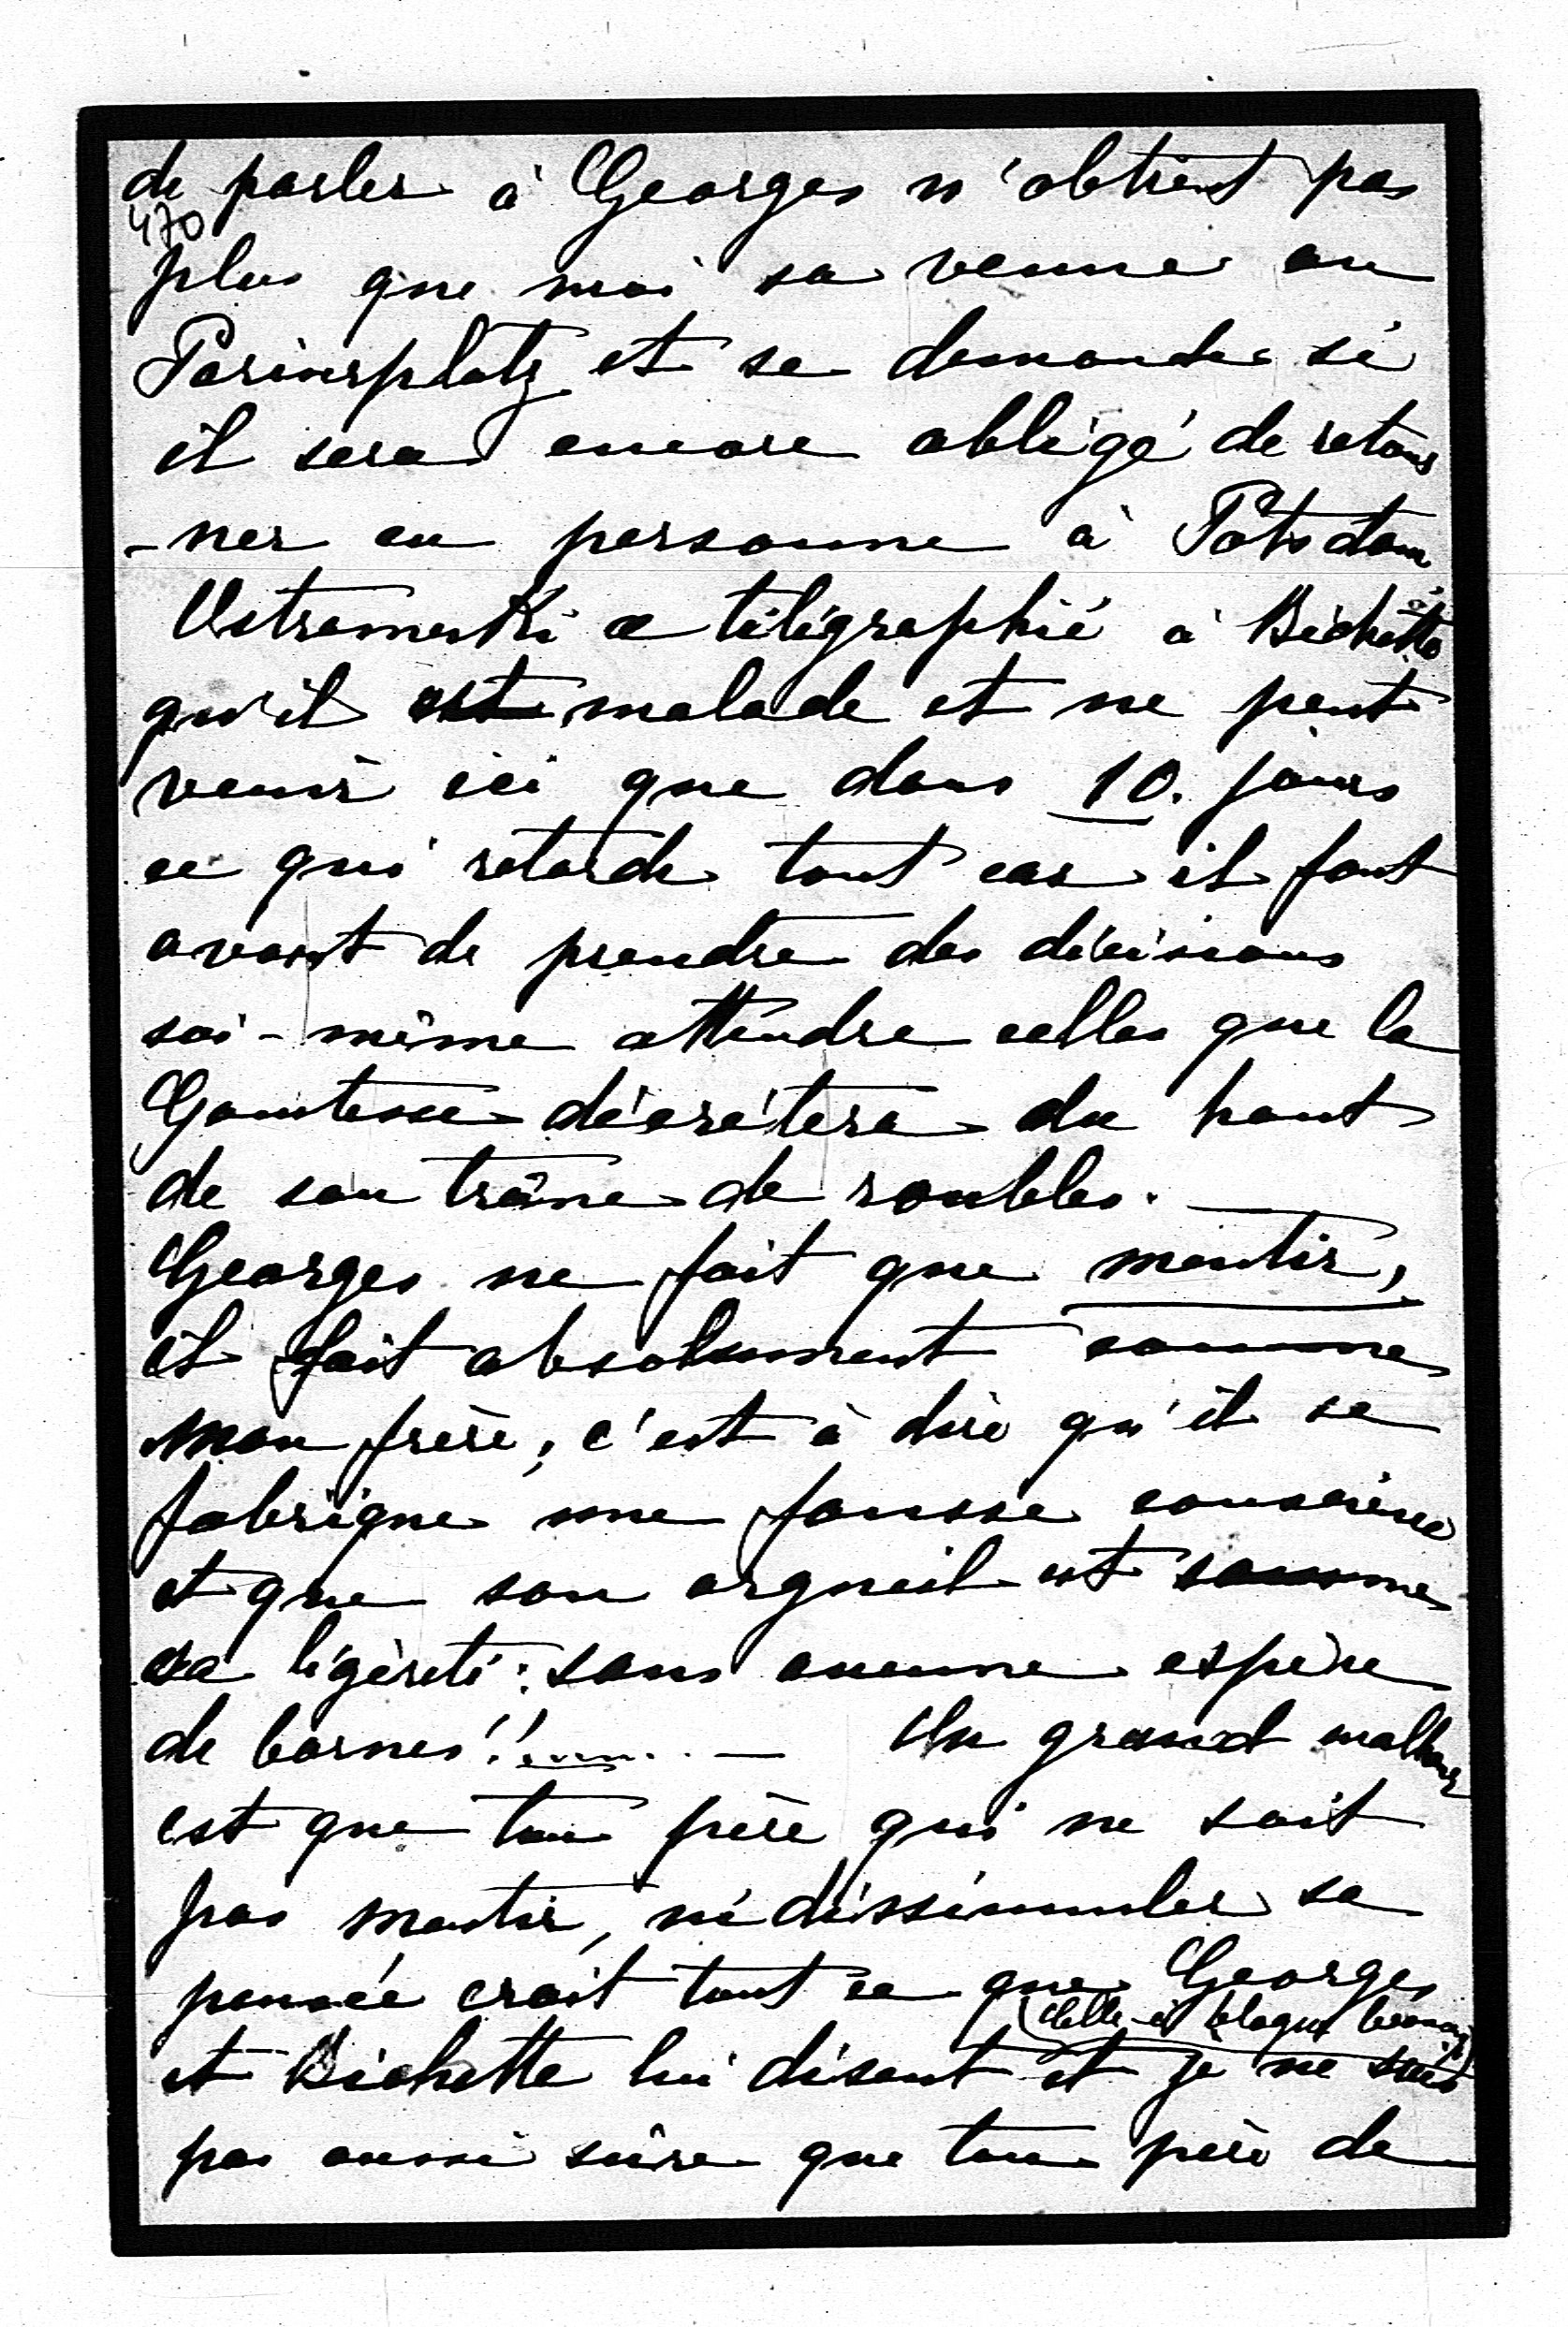 de parler à Georges n'obtient pas
470
plus que moi sa venue au
Pariserplatz et se demande si
il sera encore obligé de retour
-ner en personne à Potsdam
Ostromenski a télégraphié à Bichette
qu'il est malade et ne peut
venir ici que dans 10. jours
ce qui retarde tout car il faut
avant de prendre des décisions
soi-même attendre celles que la
Comtesse décrétera du haut
de son trône de roubles.
Georges ne fait que mentir,
il fait absolument comme
mon frère, c'est à dire qu'il se
fabrique une fausse conscience
et que son orgueil est comme
sa légèreté: sans aucune espèce
de bornes!! — Un grand malheur
est que ton père qui ne sait
pas mentir, ni dissimuler sa
pensée croit tout ce que Georges
(Celle-ci blague
et Bichette lui disent et je ne suis
pas aussi sûre que ton père de